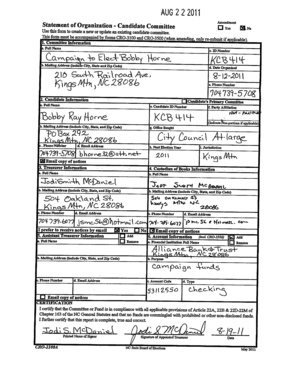 AUG 22 2011
Statement of Organization - Candidate Committee
Amendment
Yes No
Use this form to create a new or update an existing candidate committee.
This form must be accompanied by forms CRO-3100 and CRO-3500 (when amending, only re-submit if applicable).
1. Committee Information
a. Full Name
Campaign to Elect Bobby Horne
c. ID Number
KCB414
b. Mailing Address (include City, State and Zip Code)
210 South Railroad Ave.
Kings Mtn, NC 28086
d. Date Organized
8-12-2011
e. Phone Number
704 739-5708
2. Candidate Information
Candidate's Primary Committee
a. Full Name
Bobby Ray Horne
e. Candidate ID Number
KCB414
f. Party Affiliation
b. Mailing Address (include City, State and Zip Code)
PO Box 292
Kings Mtn, NC 28086
g. Office Sought
City Council At-large
c. Phone Number
d. Email Address
704 739-5708
h. Next Election Year
2011
i. Jurisdiction
Kings Mtn
Email copy of notices
3. Treasurer Information
a. Full Name
Jodi Smith McDaniel
b. Mailing Address (include City, State and Zip Code)
504 Oakland St
Kings Mtn, NC 28086
c. Phone Number
d. Email Address
704 739-6073
I prefer to receive notices by email
Yes No
4. Custodian of Books Information
a. Full Name
b. Mailing Address (include City, State and Zip Code)
28086
c. Phone Number
d. Email Address
Email copy of notices
5. Assistant Treasurer Information
Add
Remove
a. Full Name
b. Mailing Address (include City, State and Zip Code)
c. Phone Number
d. Email Address
Email copy of notices
6. Account Information
(incl. CRO-3500)
Add
Remove
a. Financial Institution Full Name
Alliance Bank & Trust
Kings Mtn, NC 28086
b. Purpose
Campaign funds
c. Account Code
d. Type
checking
CERTIFICATION
I certify that the Committee or Fund is in compliance with all applicable provisions of Article 22A, 22B & 22D-22M of
Chapter 163 of the NC General Statutes and that no funds are commingled with prohibited or other non-disclosed funds.
I further certify that this report is complete, true and correct.
Jodi S. McDaniel
Jodi S McDaniel
8-19-11
Printed Name of Signer
Signature of Appointed Treasurer
Date
CRO-2100A
NC State Board of Elections
May 2011